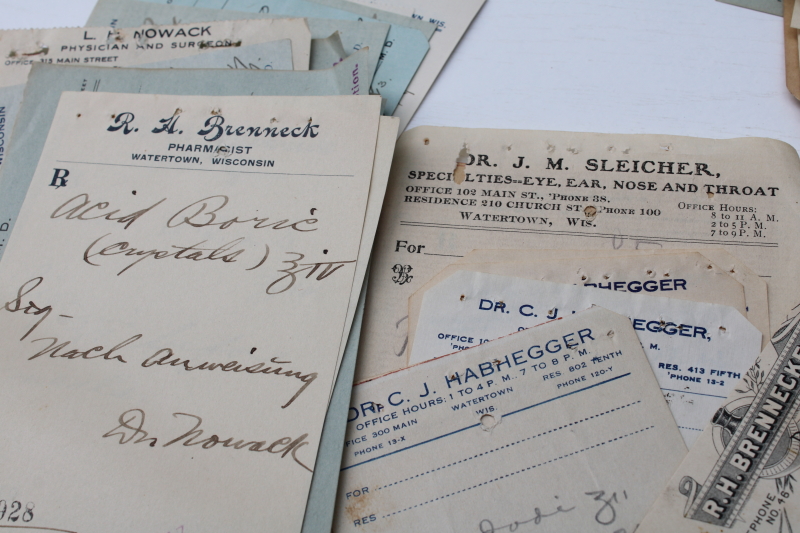 L. F. NOWACK
PHYSICIAN AND SURGEON
OFFICE 315 MAIN STREET
WISCONSIN
R. H. Brenneck
PHARMACIST
WATERTOWN, WISCONSIN
℞
Acid Boric
(Crystals) ʒiv
Sig-
Nach Anweisung
Dr. Nowack
928
DR. J. M. SLEICHER,
SPECIALTIES--EYE, EAR, NOSE AND THROAT
OFFICE 102 MAIN ST., 'PHONE 38.
RESIDENCE 210 CHURCH ST., 'PHONE 100
WATERTOWN, WIS.
OFFICE HOURS:
8 to 11 A. M.
2 to 5 P. M.
7 to 9 P. M.
For
℞
HABHEGGER
DR. C. J. HABHEGGER,
RES. 413 FIFTH
'PHONE 13-2
DR. C. J. HABHEGGER
OFFICE HOURS: 1 TO 4 P.M. 7 TO 8 P.M.
OFFICE 300 MAIN
PHONE 13-X
WATERTOWN
WIS.
RES. 802 TENTH
PHONE 120-Y
FOR
RES
R. H. BRENNECKE